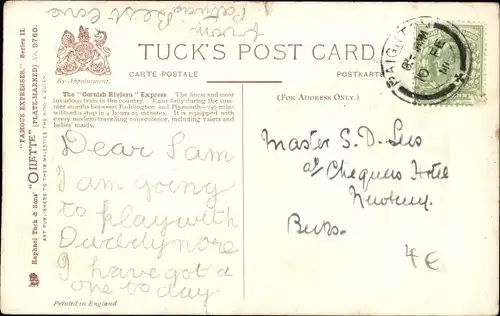 Best love
from
TUCK'S POST CARD
CARTE POSTALE
POSTKARTE
By Appointment.
(FOR ADDRESS ONLY.)
"FAMOUS EXPRESSES." Series II.
Raphael Tuck & Sons' "OILETTE" [PLATE-MARKED] No. 9760.
ART PUBLISHERS TO THEIR MAJESTIES THE KING & QUEEN.
The "Cornish Riviera" Express The finest and most
luxurious train in the country. Runs daily during the sum-
mer months between Paddington and Plymouth—246 miles
without a stop in 4 hours 25 minutes. It is equipped with
every modern travelling convenience, including valets and
ladies' maids.
Dear Sam
I am going
to play with
I have got a
one to day
Printed in England
PAIGNTON
Master S. D. Lees
at Chequers Hotel
Newbury.
Berks.
4€